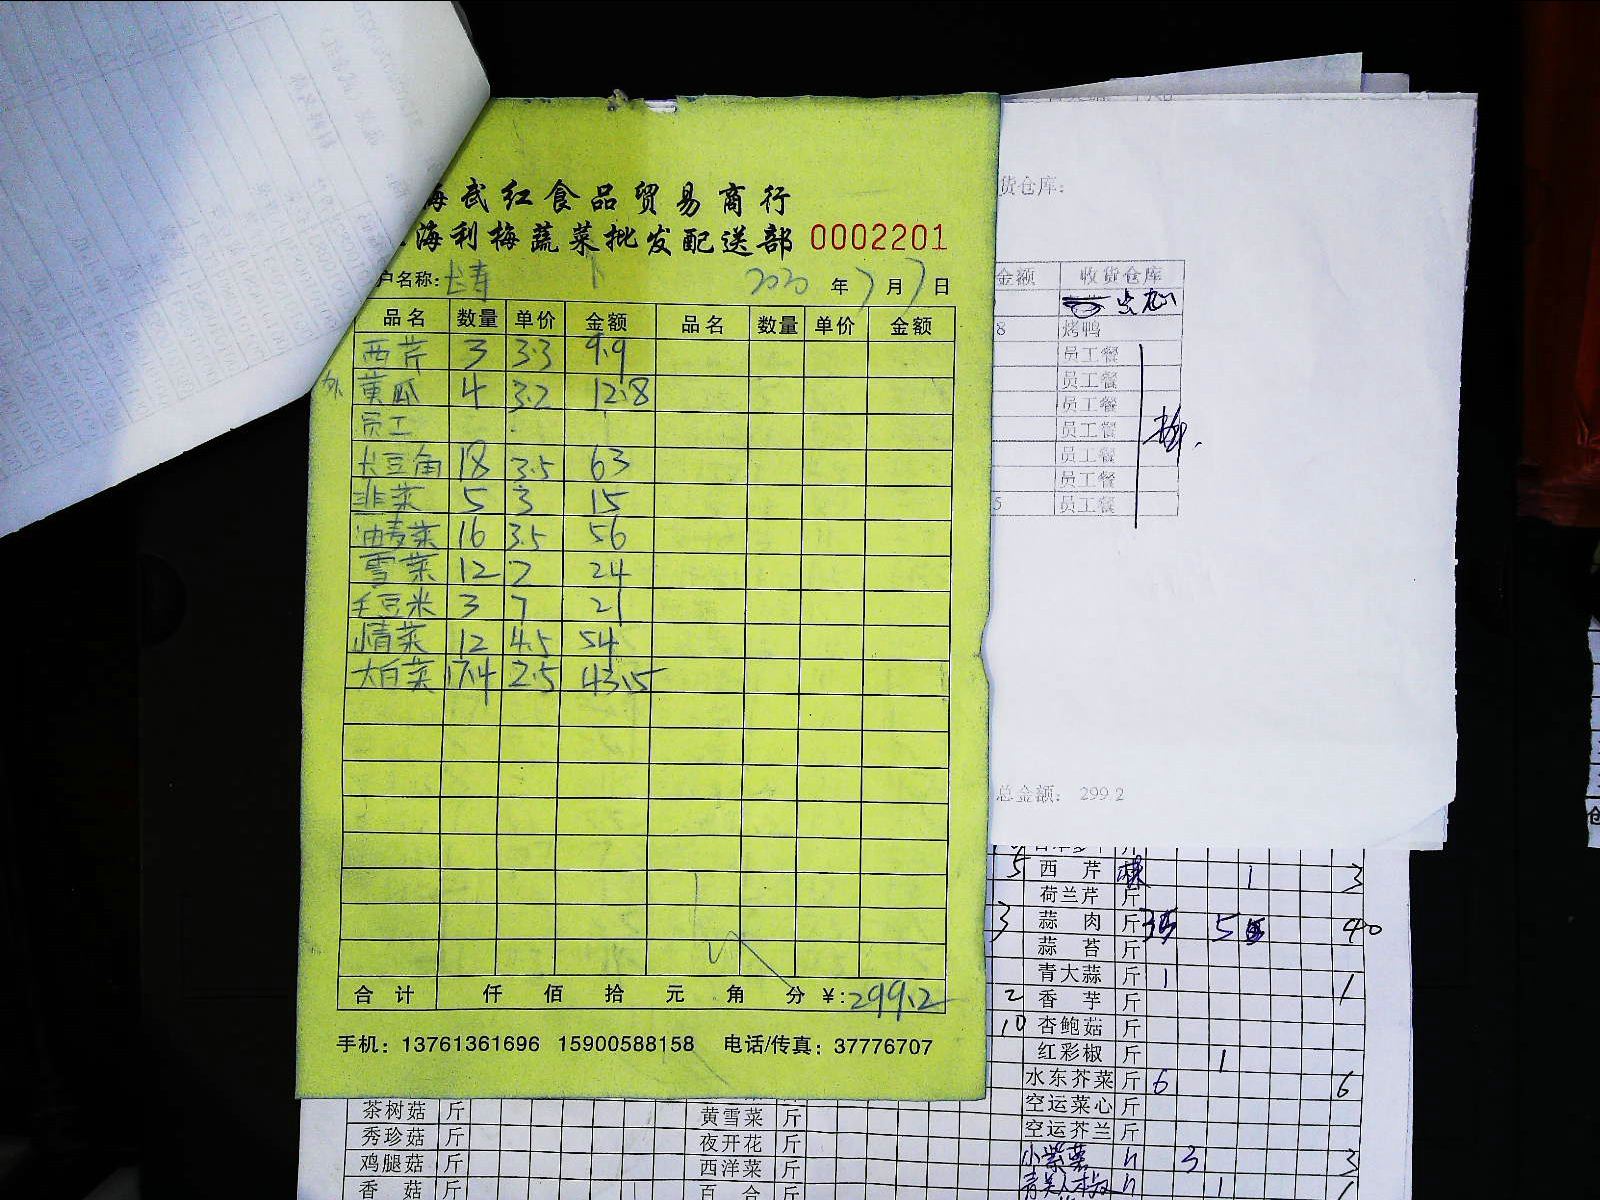 海武红食品贸易商行
海利梅蔬菜批发配送部 0002201
户名称: 长寿 2020 年 7 月 7 日
品名 数量 单价 金额 品名 数量 单价 金额
西芹 3 3.3 9.9
黄瓜 4 3.2 12.8
员工
长豆角 18 3.5 63
韭菜 5 3 15
油麦菜 16 3.5 56
雪菜 12 2 24
毛豆米 3 7 21
精菜 12 4.5 54
大白菜 17.4 2.5 43.5
合计 仟 佰 拾 元 角 分 ¥: 299.2
手机：13761361696 15900588158 电话/传真：37776707
货仓库:
金额 收货仓库
点心
8 烤鸭
员工餐
员工餐
员工餐
员工餐
员工餐
员工餐
5 员工餐
总金额: 299.2
5 西芹 1 3
荷兰芹 斤
3 蒜肉 斤 35 5 40
蒜苔 斤
青大蒜 斤 1 1
2 香芋 斤
10 杏鲍菇 斤
红彩椒 斤 1
水东芥菜 斤 6 6
空运菜心 斤
空运芥兰 斤
小紫菜 3 3
1 1
茶树菇 斤 黄雪菜 斤
秀珍菇 斤 夜开花 斤
鸡腿菇 斤 西洋菜 斤
香菇 斤 百合 斤